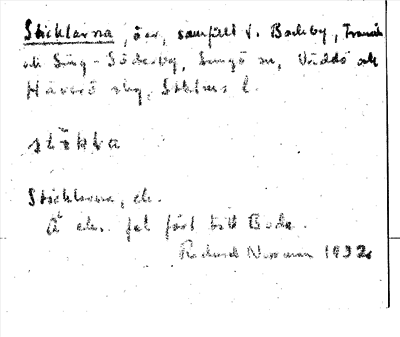 Stäcklarna, öar, samfällt f. Backby, Tranvik
och Sing-Söderby, Singö sn, Väddö och
Häverö skg, Sthlms l.
stäkka
Stäcklarna, ek.
Å ek. fel fört till Boda.
Rickard Norman 1932.